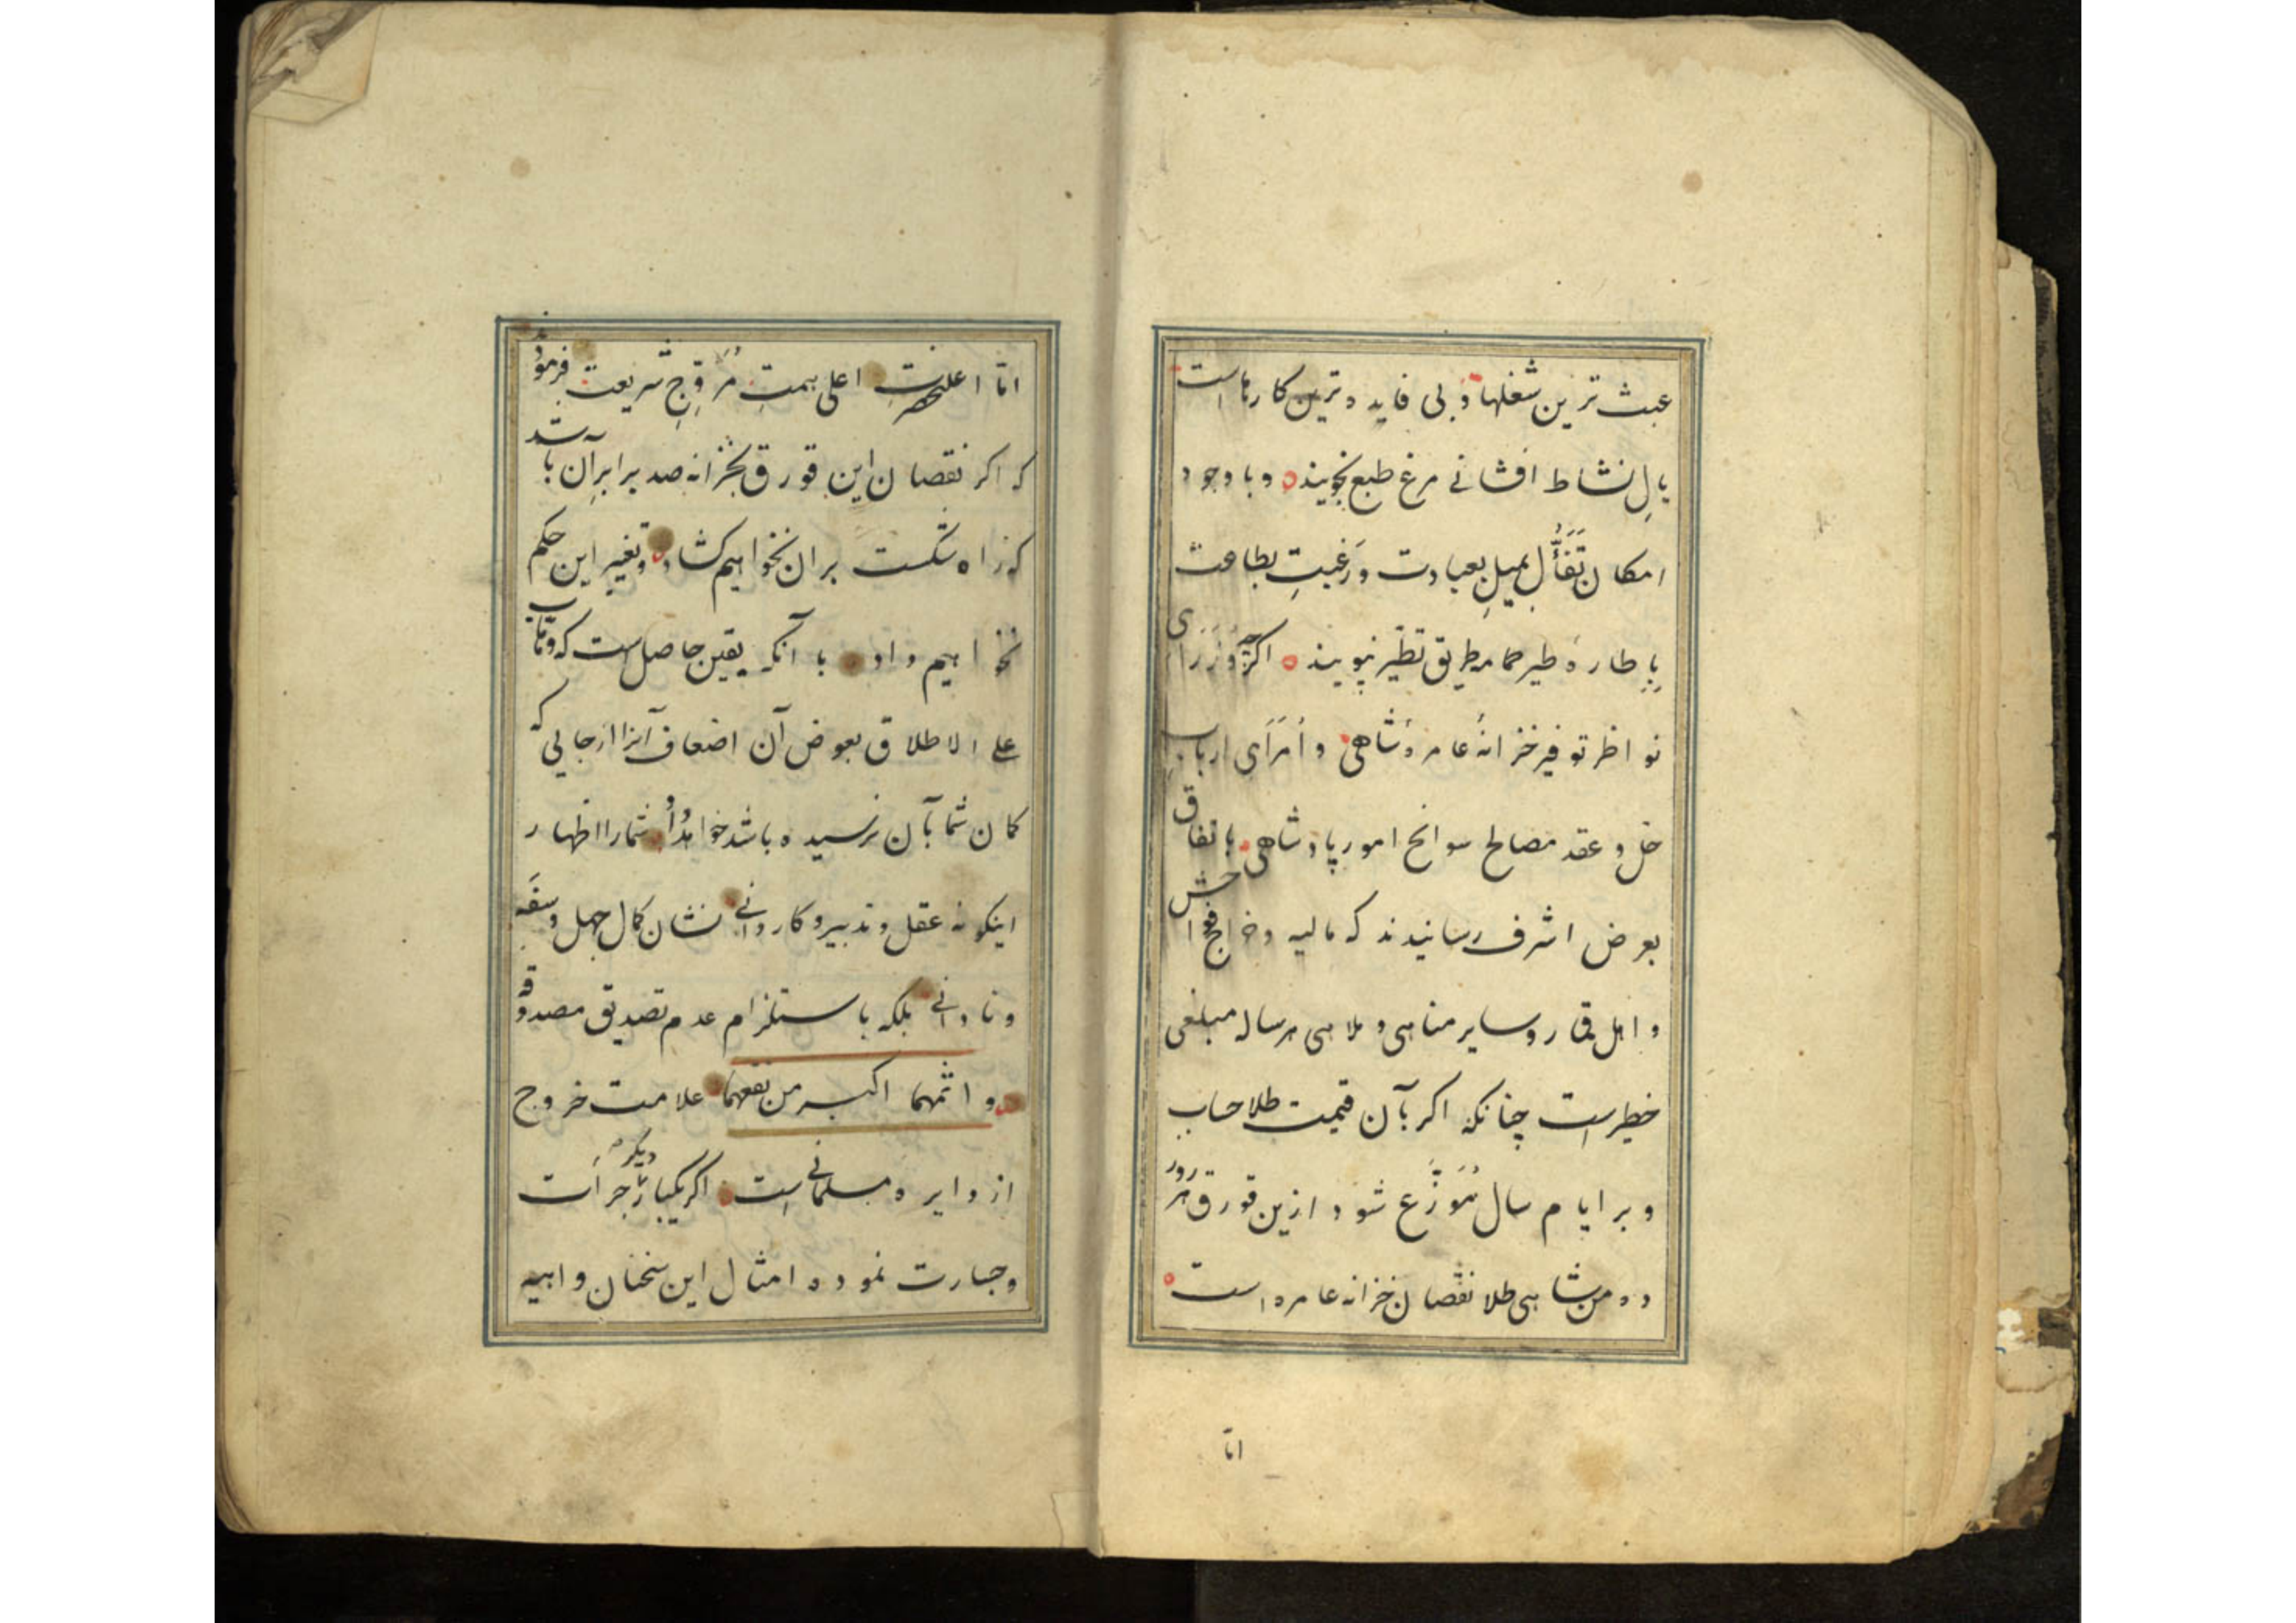 عبث ترین شغلها و بی فایده ترین کارهاست
بالِ نشاط افشانی مرغ طبع نجویند و با وجود
امکان تَفَأُّل بمیلِ بعبادت و رَغبتِ بطاعت
بِاِطارهٔ طیر حمام طریق تطیّر نپویند اکرچه وُزَرَای
نواظر توفیر خزانهٔ عامرهٔ شاهی و اُمَرَای ارباب
حلّ و عقد مصالح سوانح امور پادشاهی باتفاق
بعرض اشرف رسانیدند که مالیه و خراج فواحش
و اهل قمار و سایر مناهی و ملاهی هر ساله مبلغی
خطیر است چنانکه اکر بآن قیمت طلا حساب
و بر ایام سال مُوَزَّع شود ازین قورق هر روز
ده من شاهی طلا نقصان خزانه عامره است
امّا
امّا اعلیحضرتِ اعلی همتِ مُرَوِّجِ شریعت فرمودند
که اکر نقصان این قورق بخزانه صد برابرِ آن باشد
که راه شکست بر آن نخواهیم کشاد و تغییر این حکم
نخواهیم داد با آنکه یقین حاصل است که وهّاب
علی الاطلاق بعوض آن اضعاف آنرا از جایی که
کمان شما بآن نرسیده باشد خواهد داد شما را اظهار
اینکونه عقل و تدبیر و کاردانی نشان کمال جهل و سَفَه
و نادانی بلکه باستلزام عدم تصدیق مصدوقه
و اثمهما اکبر من نفعهما علامت خروج
از دایره مسلمانی است اکر یکبار دیکر جرأت
و جسارت نموده امثال این سخنان واهیه